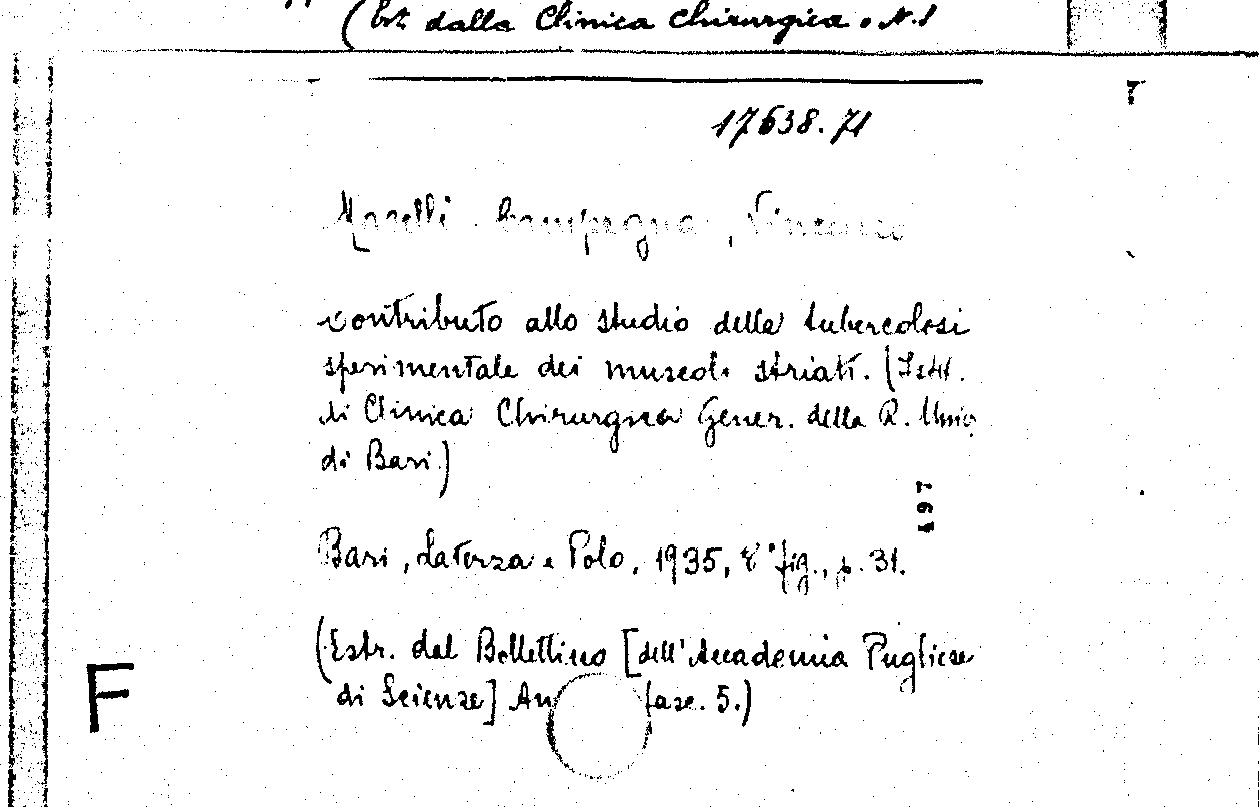 (Est. dalla Clinica Chirurgica. N.1
17638.71
Campagna, Vincenzo
contributo allo studio della tubercolosi
sperimentale dei muscoli striati. (Istit.
di Clinica Chirurgica Gener. della R. Univ.
di Bari)
497
Bari, Laterza e Polo, 1935, 8° fig., p. 31.
(Estr. dal Bollettino [dell'Accademia Pugliese
di Scienze] An fasc. 5.)
F